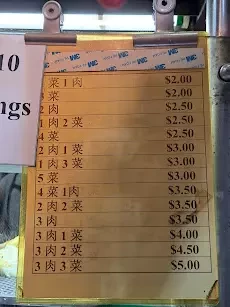 10
ngs
菜 1 肉 $2.00
菜 $2.00
肉 $2.50
1 肉 2 菜 $2.50
4 菜 $2.50
2 肉 1 菜 $3.00
1 肉 3 菜 $3.00
5 菜 $3.00
4 菜 1 肉 $3.50
2 肉 2 菜 $3.50
3 肉 $3.50
3 肉 1 菜 $4.00
3 肉 2 菜 $4.50
3 肉 3 菜 $5.00